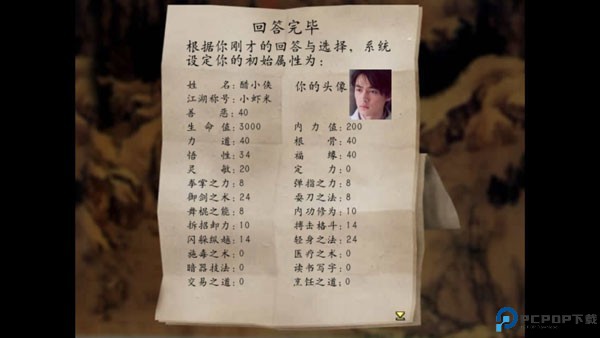 回答完毕
根据你刚才的回答与选择，系统
设定你的初始属性为：
姓名：醋小侠 你的头像
江湖称号：小虾米
善恶：40
生命值：3000 内力值：200
力道：40 根骨：40
悟性：34 福缘：40
灵敏：20 定力：0
拳掌之力：8 弹指之力：8
御剑之术：24 耍刀之法：8
舞棍之能：8 内功修为：10
拆招卸力：10 搏击格斗：14
闪躲纵越：14 轻身之法：24
施毒之术：0 医疗之术：0
暗器技法：0 读书写字：0
交易之道：0 烹饪之道：0
PCPOP下载